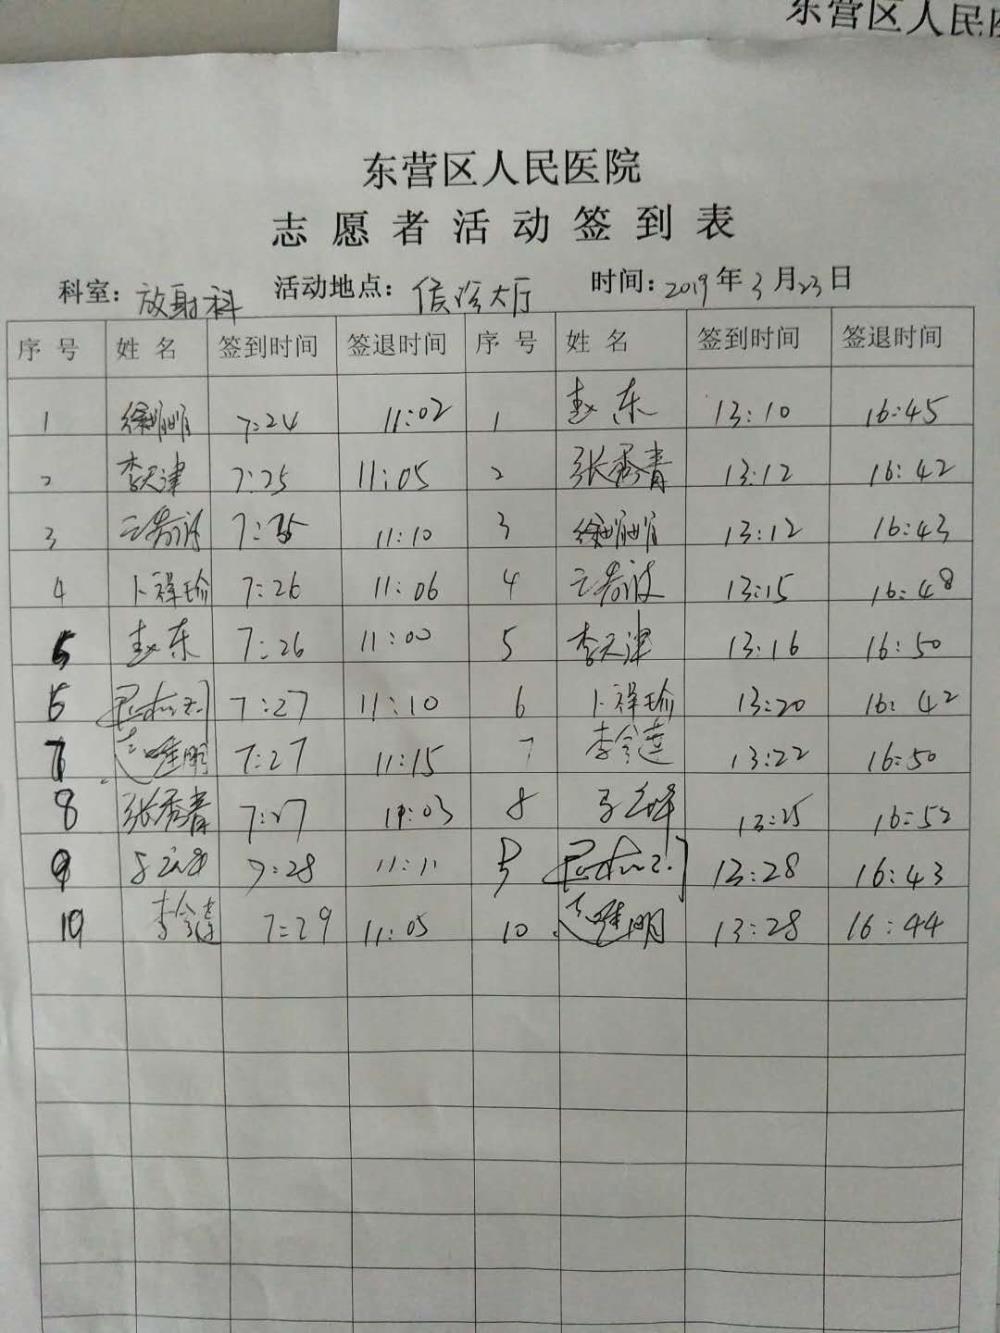 东营区人民医
东营区人民医院
志愿者活动签到表
科室：放射科 活动地点：候诊大厅 时间：2019年3月23日
序号 姓名 签到时间 签退时间 序号 姓名 签到时间 签退时间
1 徐鹃鹃 7:24 11:02 1 赵东 13:10 16:45
2 李天津 7:25 11:05 2 张秀青 13:12 16:42
3 7:25 11:10 3 徐鹃鹃 13:12 16:43
4 卜祥瑜 7:26 11:06 4 13:15 16:48
5 赵东 7:26 11:00 5 李天津 13:16 16:50
6 7:27 11:10 6 卜祥瑜 13:20 16:42
7 7:27 11:15 7 李令莲 13:22 16:50
8 张秀青 7:27 11:03 8 13:25 16:52
9 7:28 11:11 9 13:28 16:43
10 李令莲 7:29 11:05 10 13:28 16:44